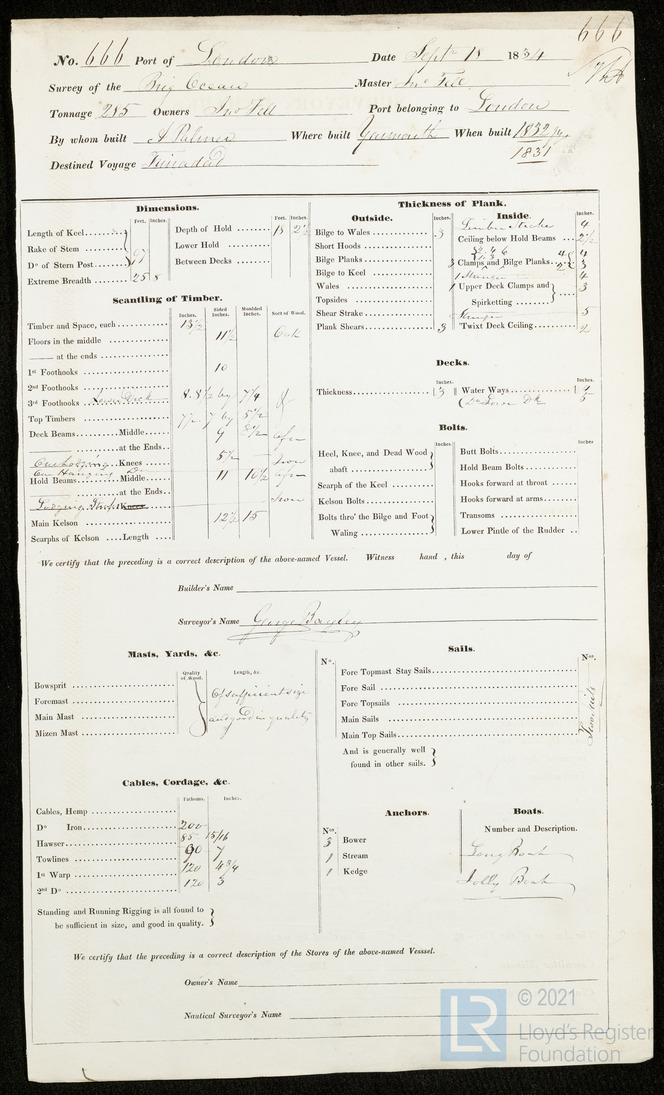 666
No. 666 Port of London Date Sept 18 1834
Survey of the Brig Ocean Master Jno Fell
Tonnage 215 Owners Jno Fell Port belonging to London
By whom built A Palmer Where built Yarmouth When built 1832
1831
Destined Voyage Trinadad
Dimensions.
Feet. Inches.
Length of Keel
Rake of Stem
Do of Stern Post
Extreme Breadth 25 8
Feet. Inches.
Depth of Hold 18 2½
Lower Hold
Between Decks
Scantling of Timber.
Inches. Sided Inches. Moulded Inches. Sort of Wood.
Timber and Space, each
Floors in the middle 11½ Oak
—— at the ends
1st Foothooks 10
2nd Foothooks
3rd Foothooks 8.8½ by 7¼
Top Timbers 7½ 7 by 5½
Deck Beams Middle 9
at the Ends
Knees 5½ Iron
Hold Beams Middle 11 10½
at the Ends
Lodging Knees Iron
Main Kelson 12½ 15
Scarphs of Kelson Length
Thickness of Plank.
Outside. Inches.
Bilge to Wales 3
Short Hoods
Bilge Planks
Bilge to Keel 3
Wales
Topsides 1
Shear Strake
Plank Shears 3
Inside. Inches.
Limber Strake 4
Ceiling below Hold Beams 2½
Clamps and Bilge Planks
Upper Deck Clamps and
Spirketting
5
'Twixt Deck Ceiling 2
Decks.
Inches. Inches.
Thickness 3 Water Ways
Bolts.
Inches Inches
Heel, Knee, and Dead Wood
abaft
Scarph of the Keel
Kelson Bolts
Bolts thro' the Bilge and Foot
Waling
Butt Bolts
Hold Beam Bolts
Hooks forward at throat
Hooks forward at arms
Transoms
Lower Pintle of the Rudder
We certify that the preceding is a correct description of the above-named Vessel. Witness hand , this day of
Builder's Name
Surveyor's Name George Bayley
Masts, Yards, &c.
Quality of Wood. Length, &c.
Bowsprit
Foremast Of sufficient size
Main Mast and good in quality
Mizen Mast
Sails.
No. Nos.
Fore Topmast Stay Sails
Fore Sail
Fore Topsails
Main Sails
Main Top Sails
And is generally well
found in other sails.
Cables, Cordage, &c.
Fathoms. Inches.
Cables, Hemp
Do Iron 200 15/16
Hawser 85
Towlines 90 7
1st Warp 120 4¾
2nd Do 120 3
Standing and Running Rigging is all found to
be sufficient in size, and good in quality.
Anchors.
Nos.
3 Bower
1 Stream
1 Kedge
Boats.
Number and Description.
Long Boat
Jolly Boat
We certify that the preceding is a correct description of the Stores of the above-named Vesssel.
Owner's Name
Nautical Surveyor's Name
LR
© 2021
Lloyd's Register
Foundation